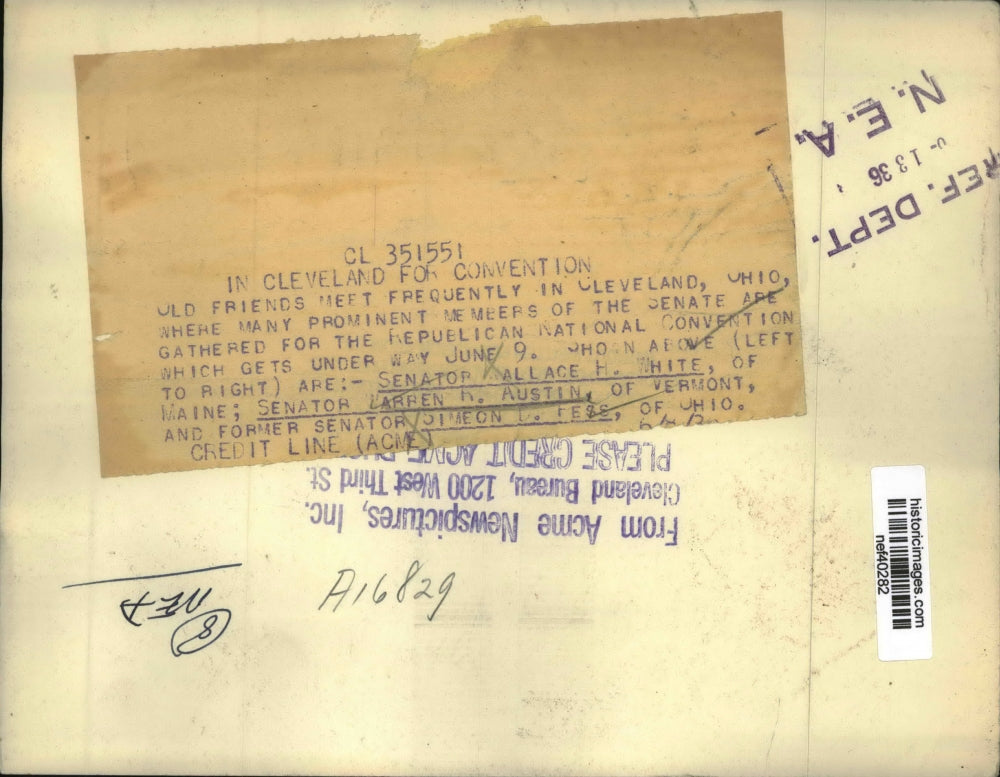 CL 351551
IN CLEVELAND FOR CONVENTION
OLD FRIENDS MEET FREQUENTLY IN CLEVELAND, OHIO,
WHERE MANY PROMINENT MEMBERS OF THE SENATE ARE
GATHERED FOR THE REPUBLICAN NATIONAL CONVENTION
WHICH GETS UNDER WAY JUNE 9. SHOWN ABOVE (LEFT
TO RIGHT) ARE:- SENATOR WALLACE H. WHITE, OF
MAINE; SENATOR WARREN R. AUSTIN, OF VERMONT,
AND FORMER SENATOR SIMEON D. FESS, OF OHIO.
CREDIT LINE (ACME)
From Acme Newspictures, Inc.
Cleveland Bureau, 1200 West Third St.
PLEASE CREDIT ACME
N. E. A.
13 36
REF. DEPT.
A16829
8
NEA
historicimages.com
nef40282